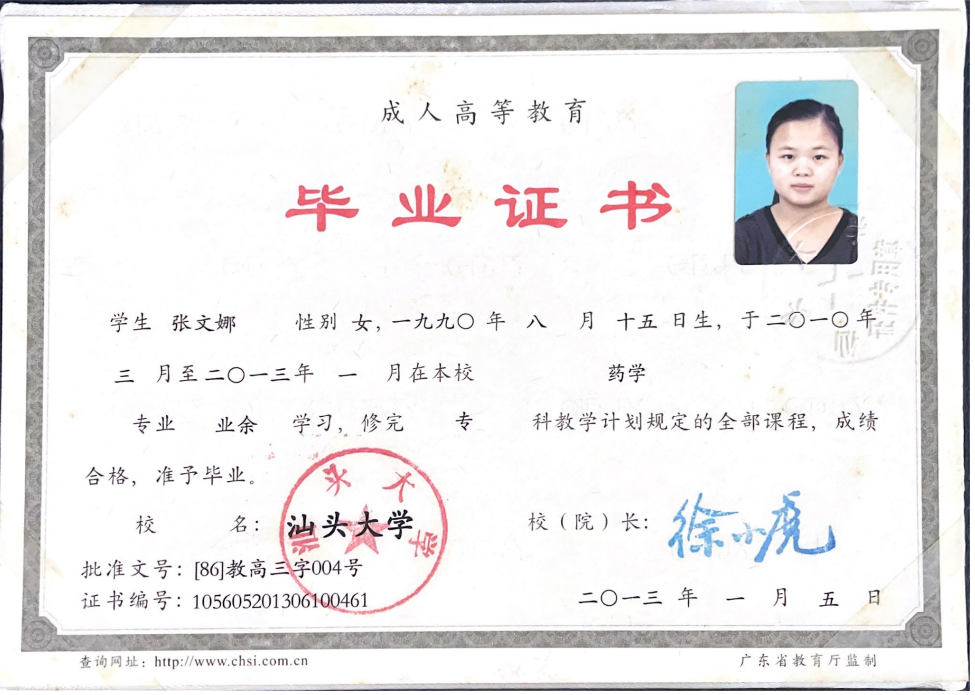 成人高等教育
毕业证书
学生 张文娜 性别 女，一九九〇年 八 月 十五 日生，于二〇一〇年
三 月至二〇一三年 一 月在本校 药学
专业 业余 学习，修完 专 科教学计划规定的全部课程，成绩
合格，准予毕业。
校 名：汕头大学
校（院）长：徐小虎
批准文号：[86]教高三字004号
证书编号：105605201306100461
二〇一三 年 一 月 五 日
汕头大学
查询网址：http://www.chsi.com.cn
广东省教育厅监制